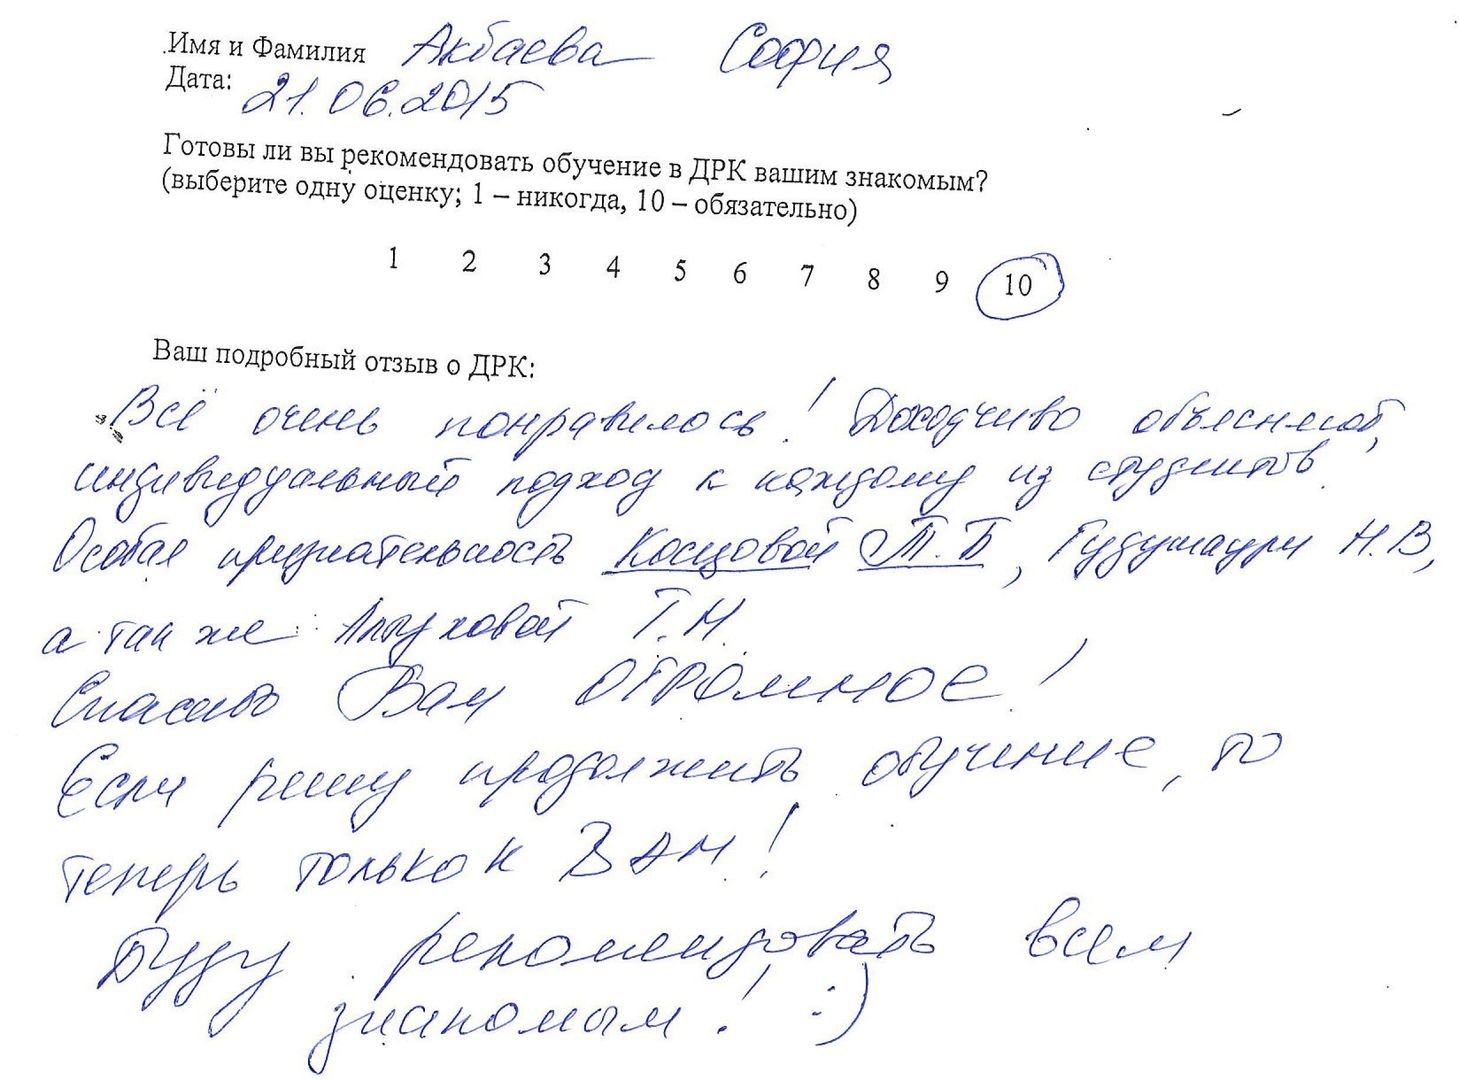 Имя и Фамилия Акбаева София
Дата: 21.06.2015
Готовы ли вы рекомендовать обучение в ДРК вашим знакомым?
(выберите одну оценку; 1 – никогда, 10 – обязательно)
1 2 3 4 5 6 7 8 9 10
Ваш подробный отзыв о ДРК:
Всё очень понравилось! Доходчиво объясняют,
индивидуальный подход к каждому из студентов.
Особая признательность Косцовой Т.Б, Гудушаури Н.В,
а так же Апыховой Т.Н.
Спасибо Вам ОГРОМНОЕ!
Если решу продолжить обучение, то
теперь только к ВАМ!
Буду рекомендовать всем
знакомым! :)